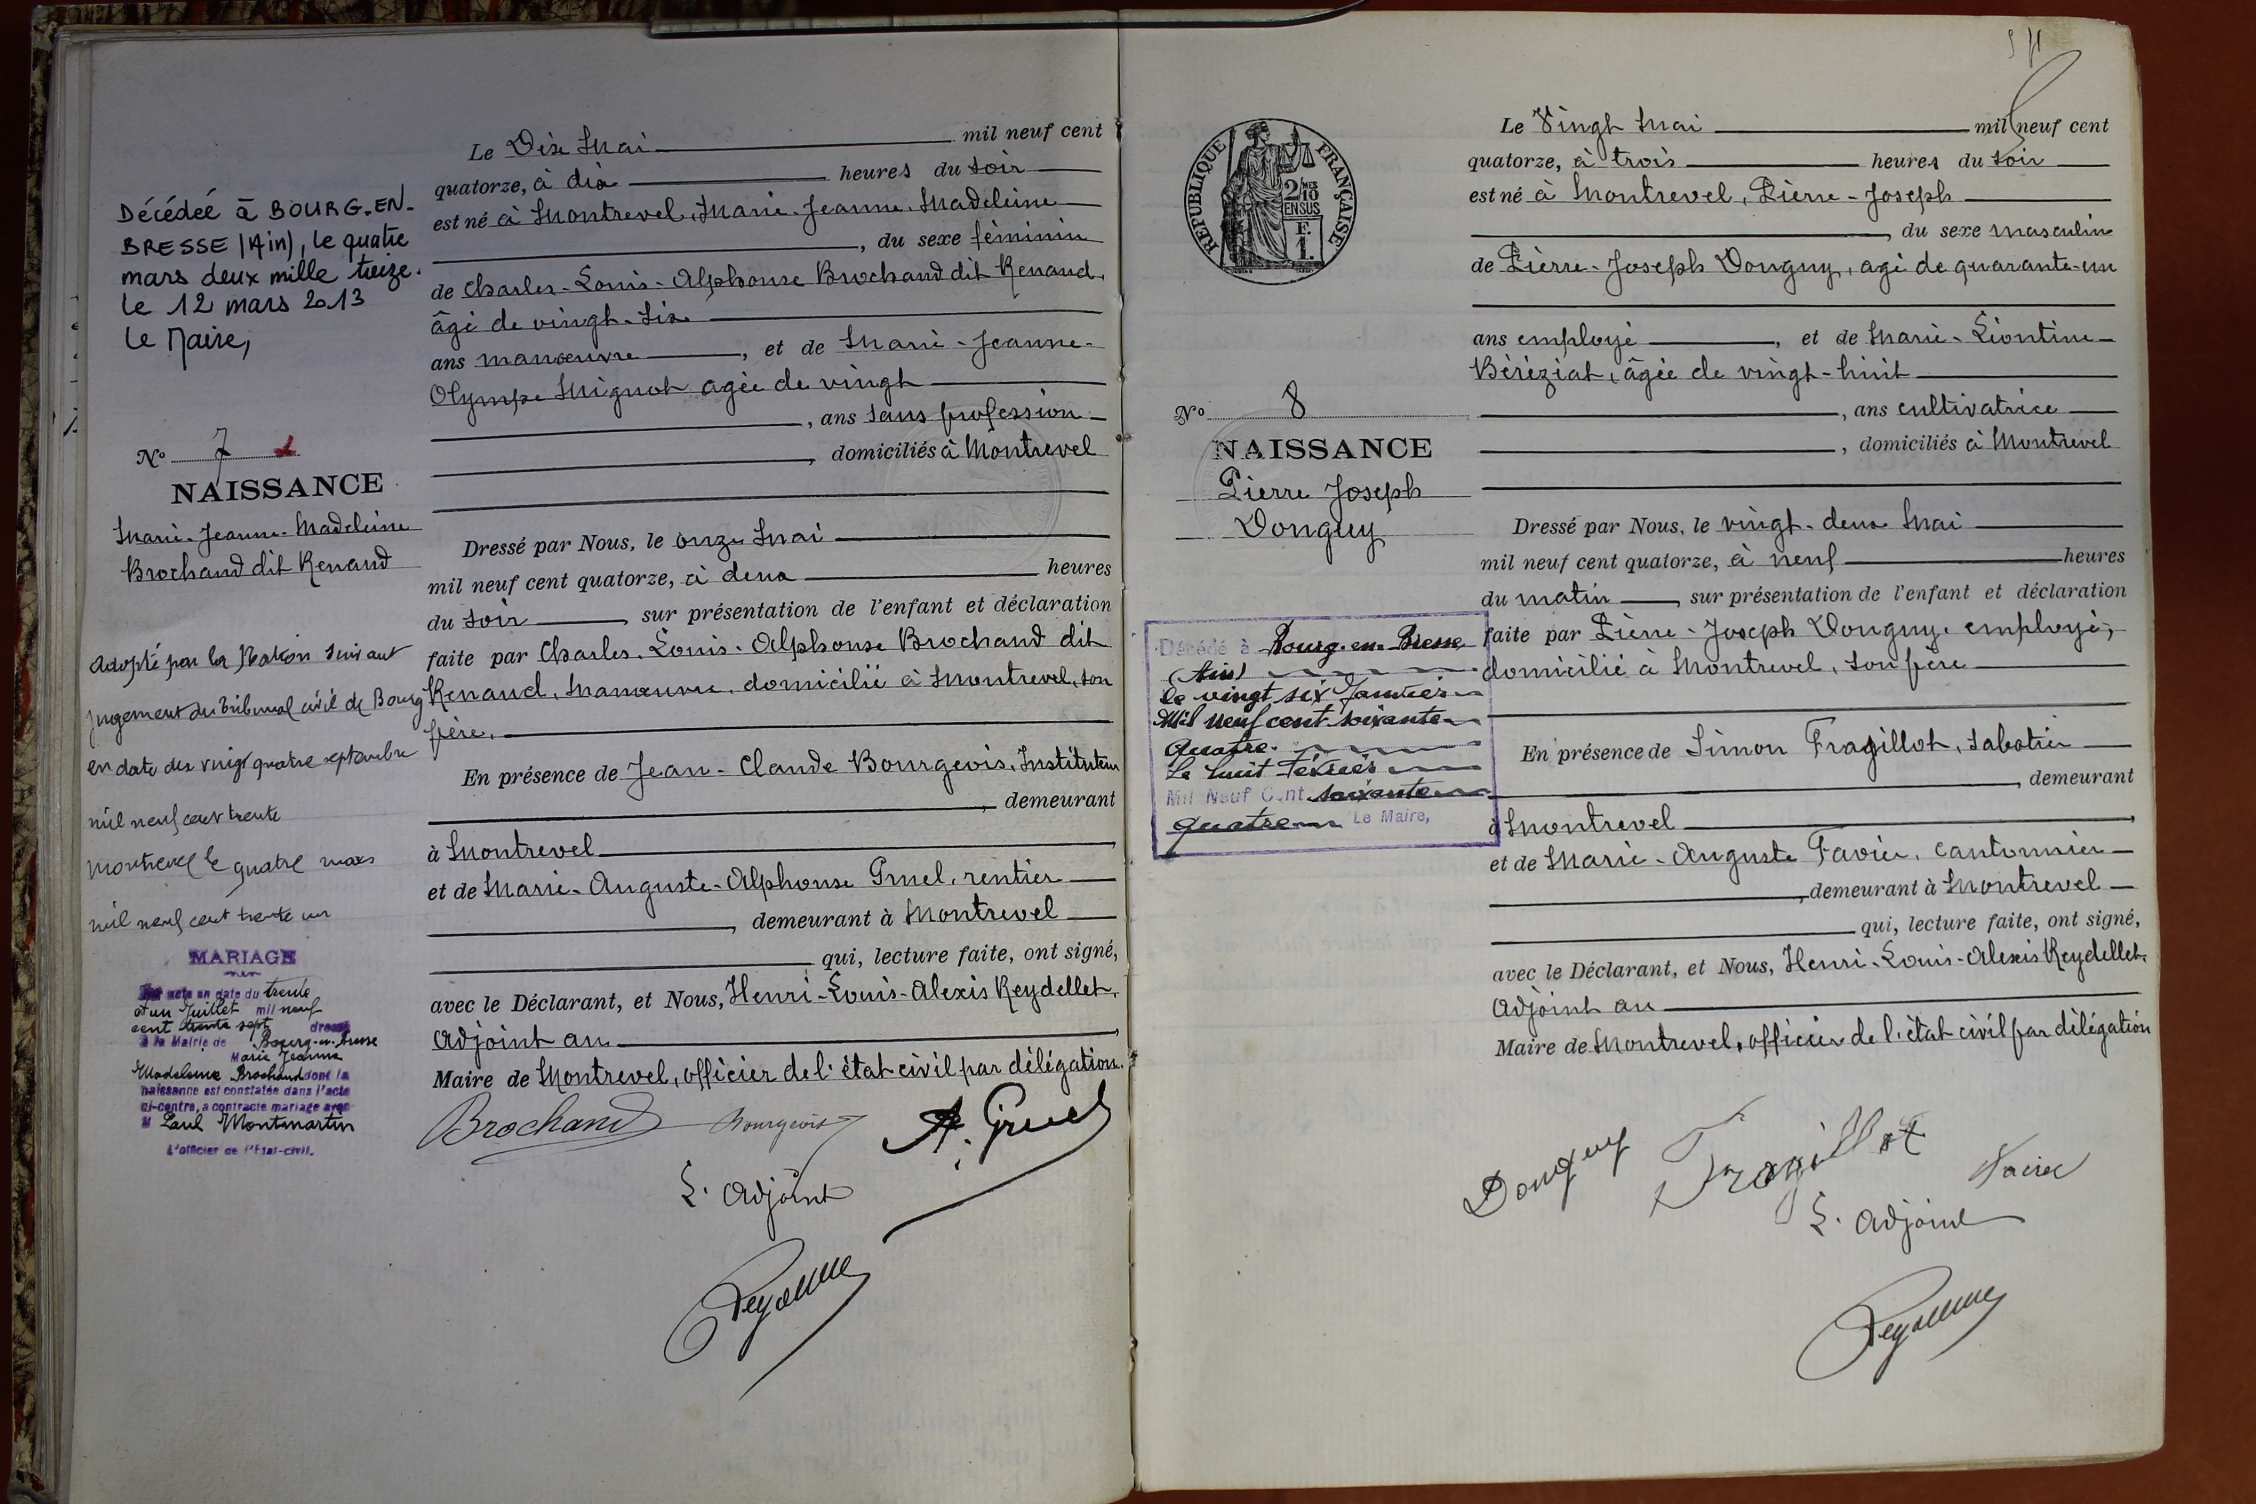 Décédée à BOURG-EN-
BRESSE (Ain), le quatre
mars deux mille treize.
le 12 mars 2013
le Maire,
No 7
NAISSANCE
Marie-Jeanne-Madeleine
Brochand dit Renand
Adopté par la Nation suivant
jugement du Tribunal civil de Bourg
en date du vingt quatre septembre
mil neuf cent trente
Montrevel le quatre mars
mil neuf cent trente un
MARIAGE
acte en date du trente
et un Juillet mil neuf
cent trente sept dressé
à la Mairie de Bourg-en-Bresse
Marie Jeanne
Madeleine Brochand dont la
naissance est constatée dans l'acte
ci-contre, a contracté mariage avec
M Paul Montmartin
L'officier de l'Etat-civil.
Le Dix Mai mil neuf cent
quatorze, à dix heures du soir
est né à Montrevel, Marie-Jeanne-Madeleine
, du sexe féminin
de Charles-Louis-Alphonse Brochand dit Renand,
âgé de vingt-six
ans manœuvre, et de Marie-Jeanne-
Olympe Mignot agée de vingt
, ans sans profession
, domiciliés à Montrevel
Dressé par Nous, le onze Mai
mil neuf cent quatorze, à deux heures
du soir, sur présentation de l'enfant et déclaration
faite par Charles-Louis-Alphonse Brochand dit
Renand, Manœuvre, domicilié à Montrevel, son
père,
En présence de Jean-Claude Bourgeois, Instituteur
, demeurant
à Montrevel
et de Marie-Auguste-Alphonse Gruel, rentier
, demeurant à Montrevel
qui, lecture faite, ont signé,
avec le Déclarant, et Nous, Henri-Louis-Alexis Reydellet,
Adjoint au
Maire de Montrevel, officier de l'état civil par délégation.
Brochand Bourgeois A. Gruel
L'Adjoint
RÉPUBLIQUE FRANÇAISE
2/10 MES
EN SUS
F.
1.
No 8
NAISSANCE
Pierre Joseph
Donguy
Décédé à Bourg-en-Bresse
(Ain)
le vingt six Janvier
Mil neuf cent soixante
quatre.
Le huit Février
Mil Neuf Cent soixante
quatre Le Maire,
Le Vingt Mai mil neuf cent
quatorze, à trois heures du soir
est né à Montrevel, Pierre-Joseph
, du sexe masculin
de Pierre-Joseph Donguy, agé de quarante-un
ans employé, et de Marie-Léontine
Béréziat, âgée de vingt-huit
, ans cultivatrice
, domiciliés à Montrevel
Dressé par Nous, le vingt-deux Mai
mil neuf cent quatorze, à neuf heures
du matin, sur présentation de l'enfant et déclaration
faite par Pierre-Joseph Donguy, employé,
domicilié à Montrevel, son père
En présence de Simon Fragillot, sabotier
, demeurant
à Montrevel
et de Marie-Auguste Favier, cantonnier
, demeurant à Montrevel
qui, lecture faite, ont signé,
avec le Déclarant, et Nous, Henri-Louis-Alexis Reydellet,
Adjoint au
Maire de Montrevel, officier de l'état civil par délégation
Donguy Fragillot Favier
L'Adjoint